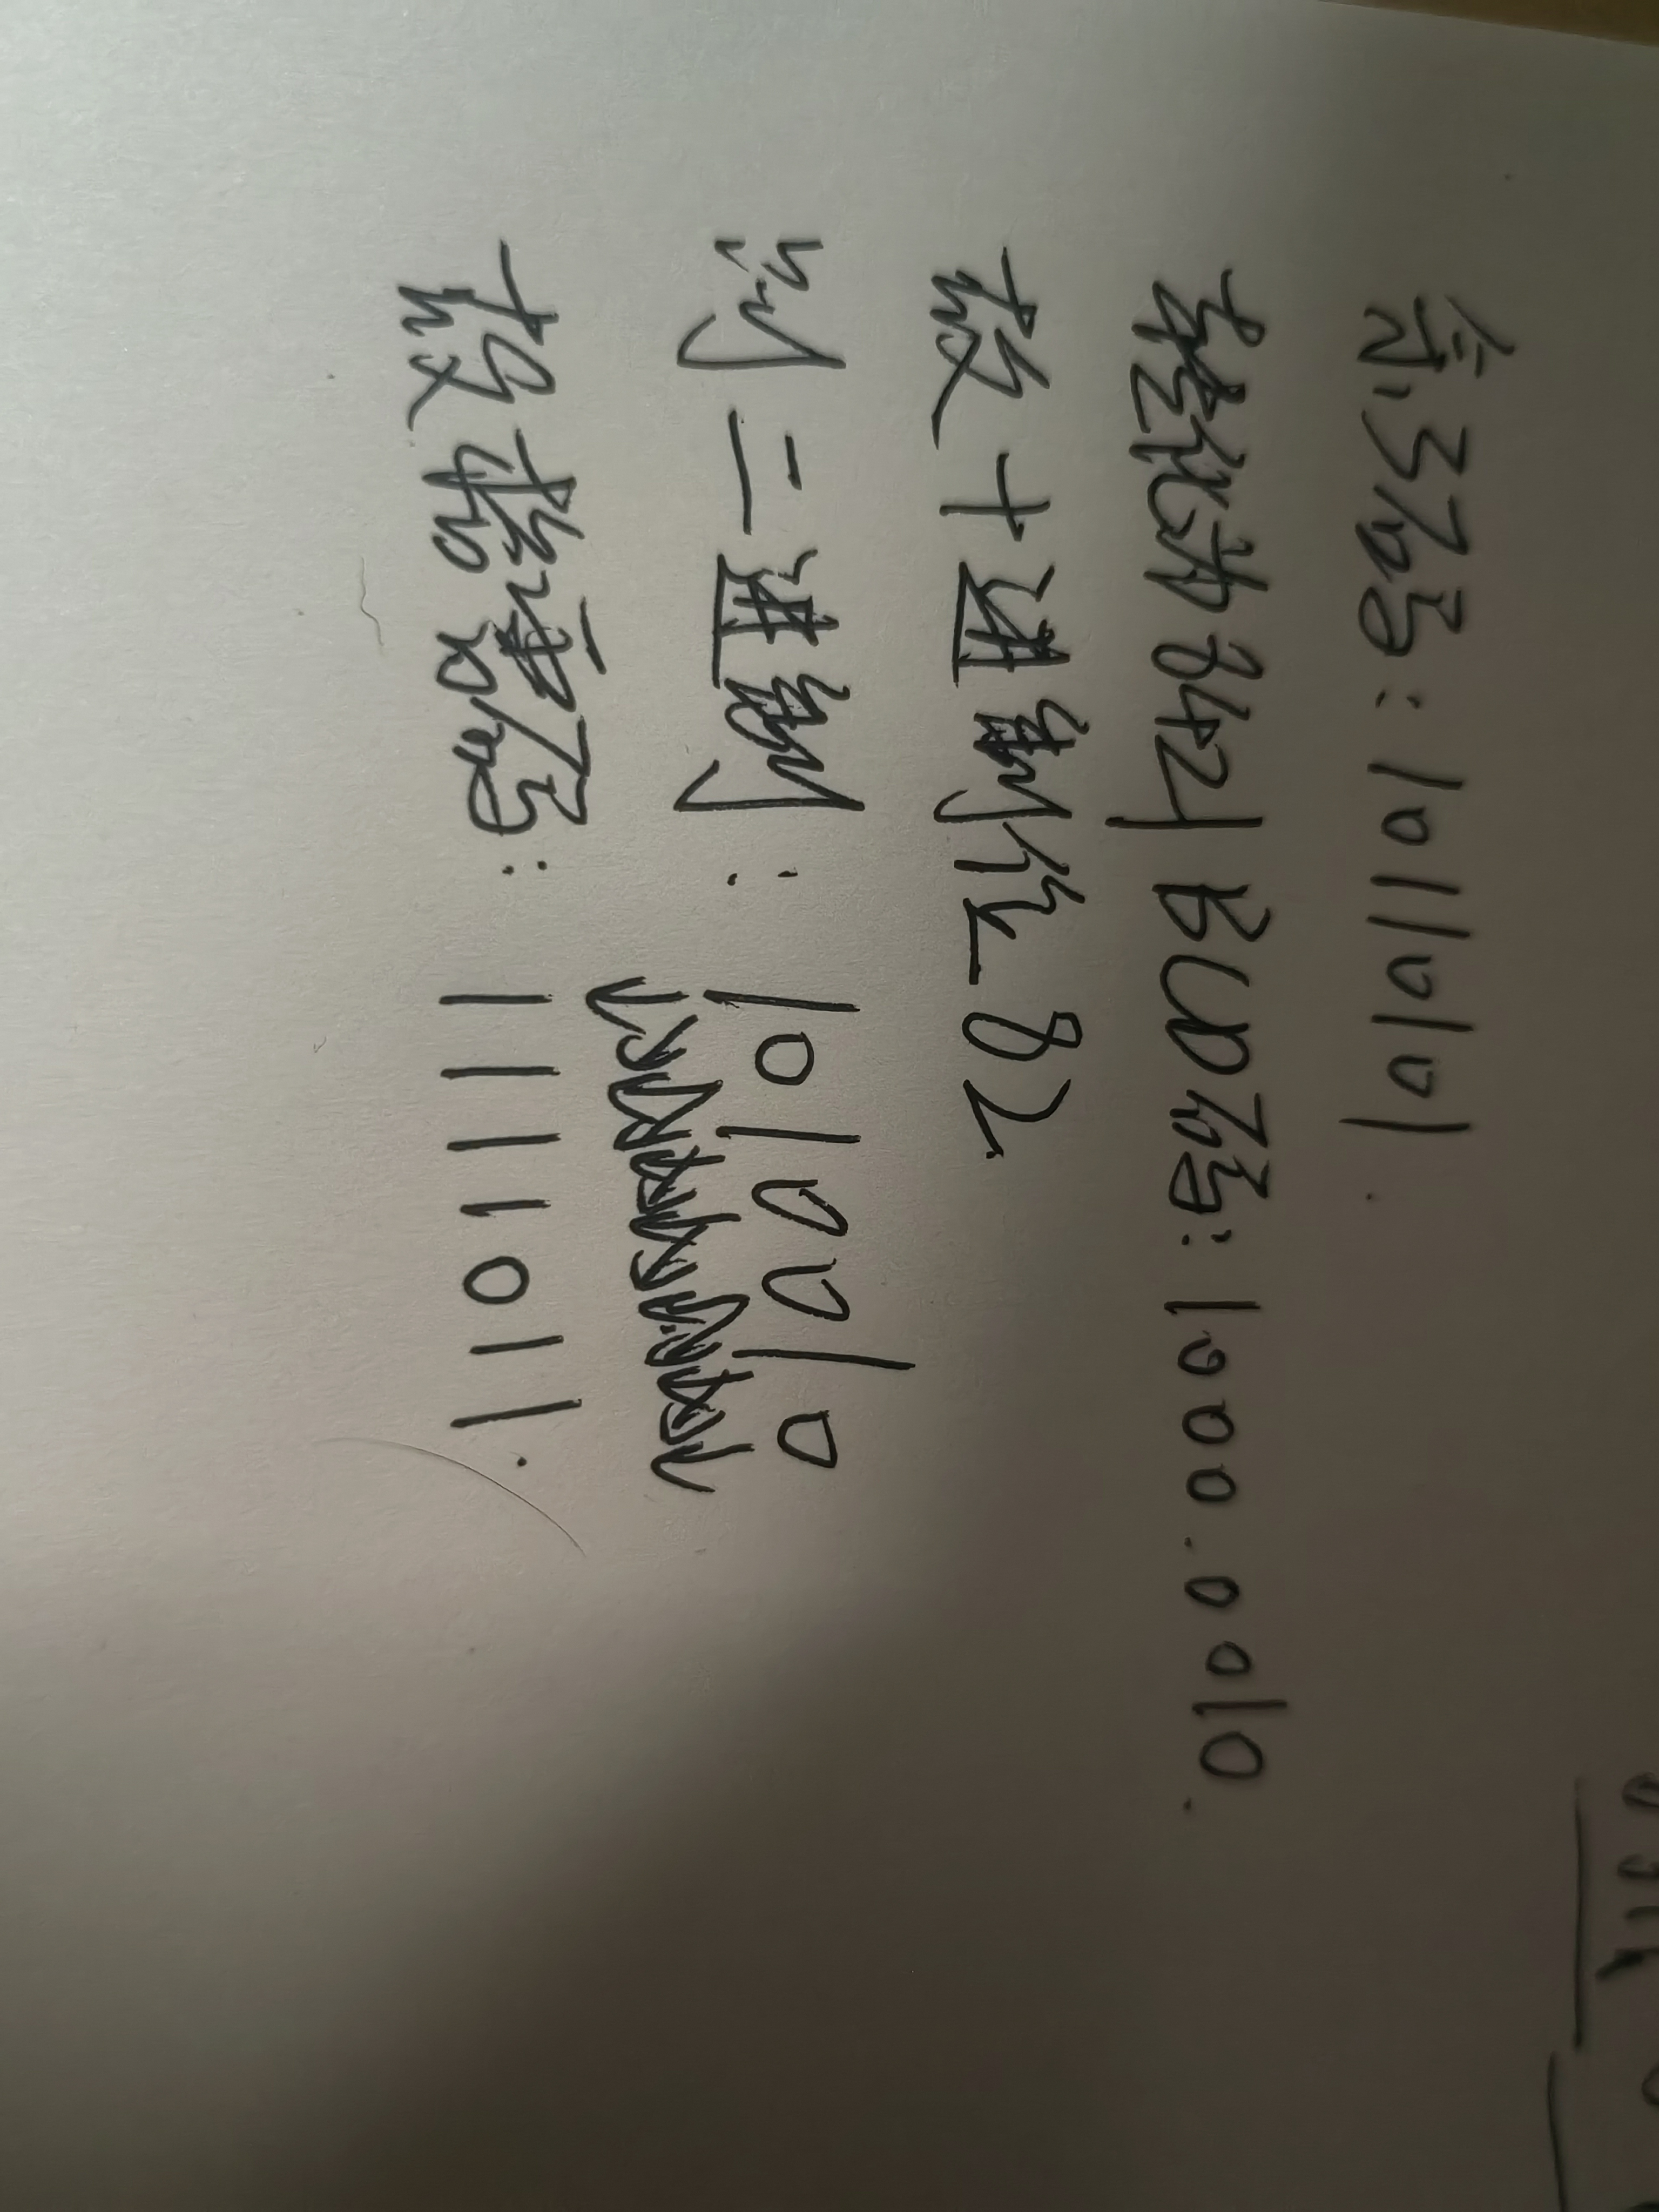 余3码:10110101.
转化为8421BCD码:1000.0010.
故十进制化82.
则二进制:1010010
故格雷码:1111011.